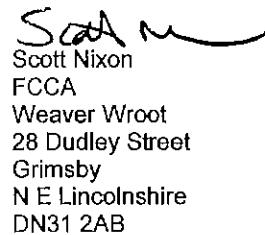 Scott N
Scott Nixon
FCCA
Weaver Wroot
28 Dudley Street
Grimsby
N E Lincolnshire
DN31 2AB